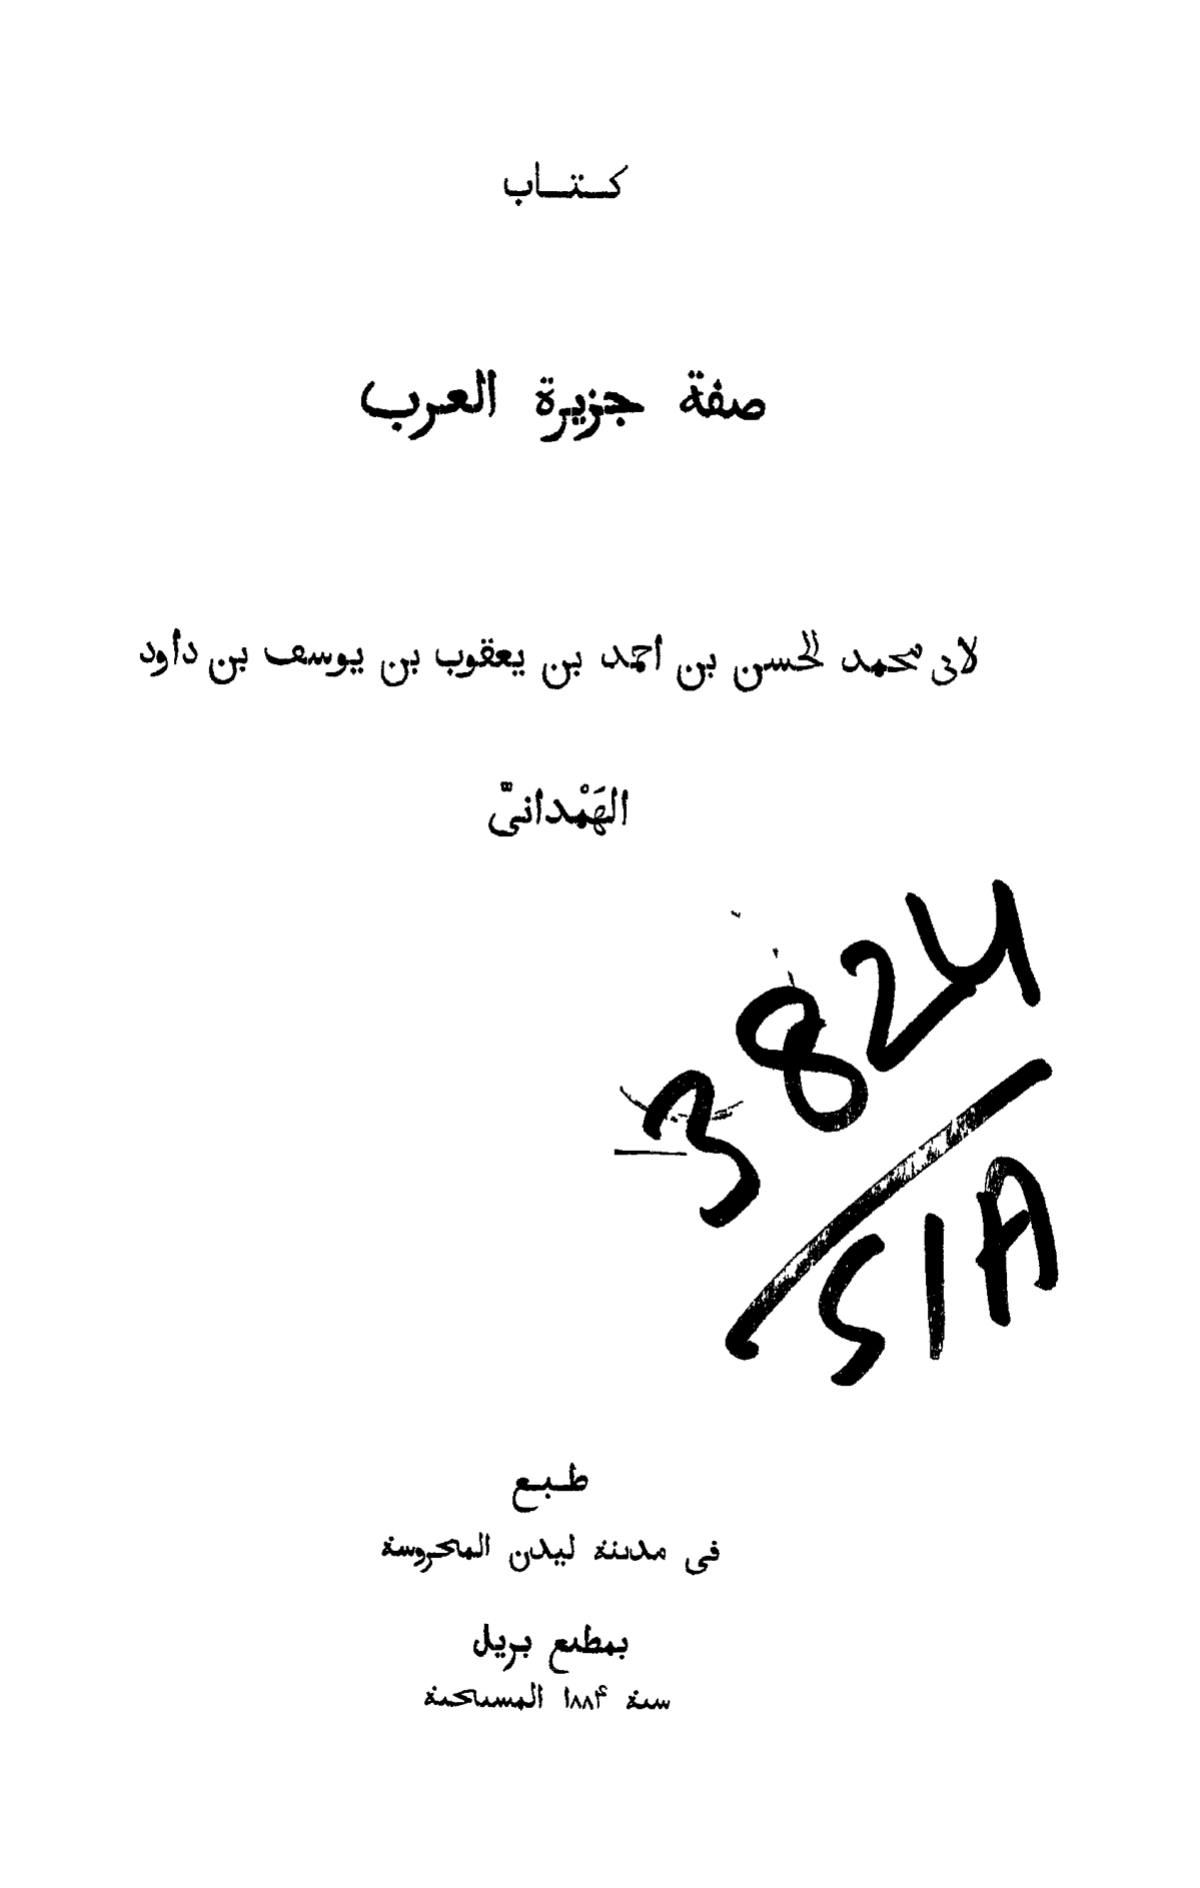 كتاب
صفة جزيرة العرب
لابى محمد الحسن بن احمد بن يعقوب بن يوسف بن داود
الهَمْدانىّ
3824
S/A
طبع
فى مدينة ليدن المحروسة
بمطبع بريل
سنة ١٨٨۴ المسيحية